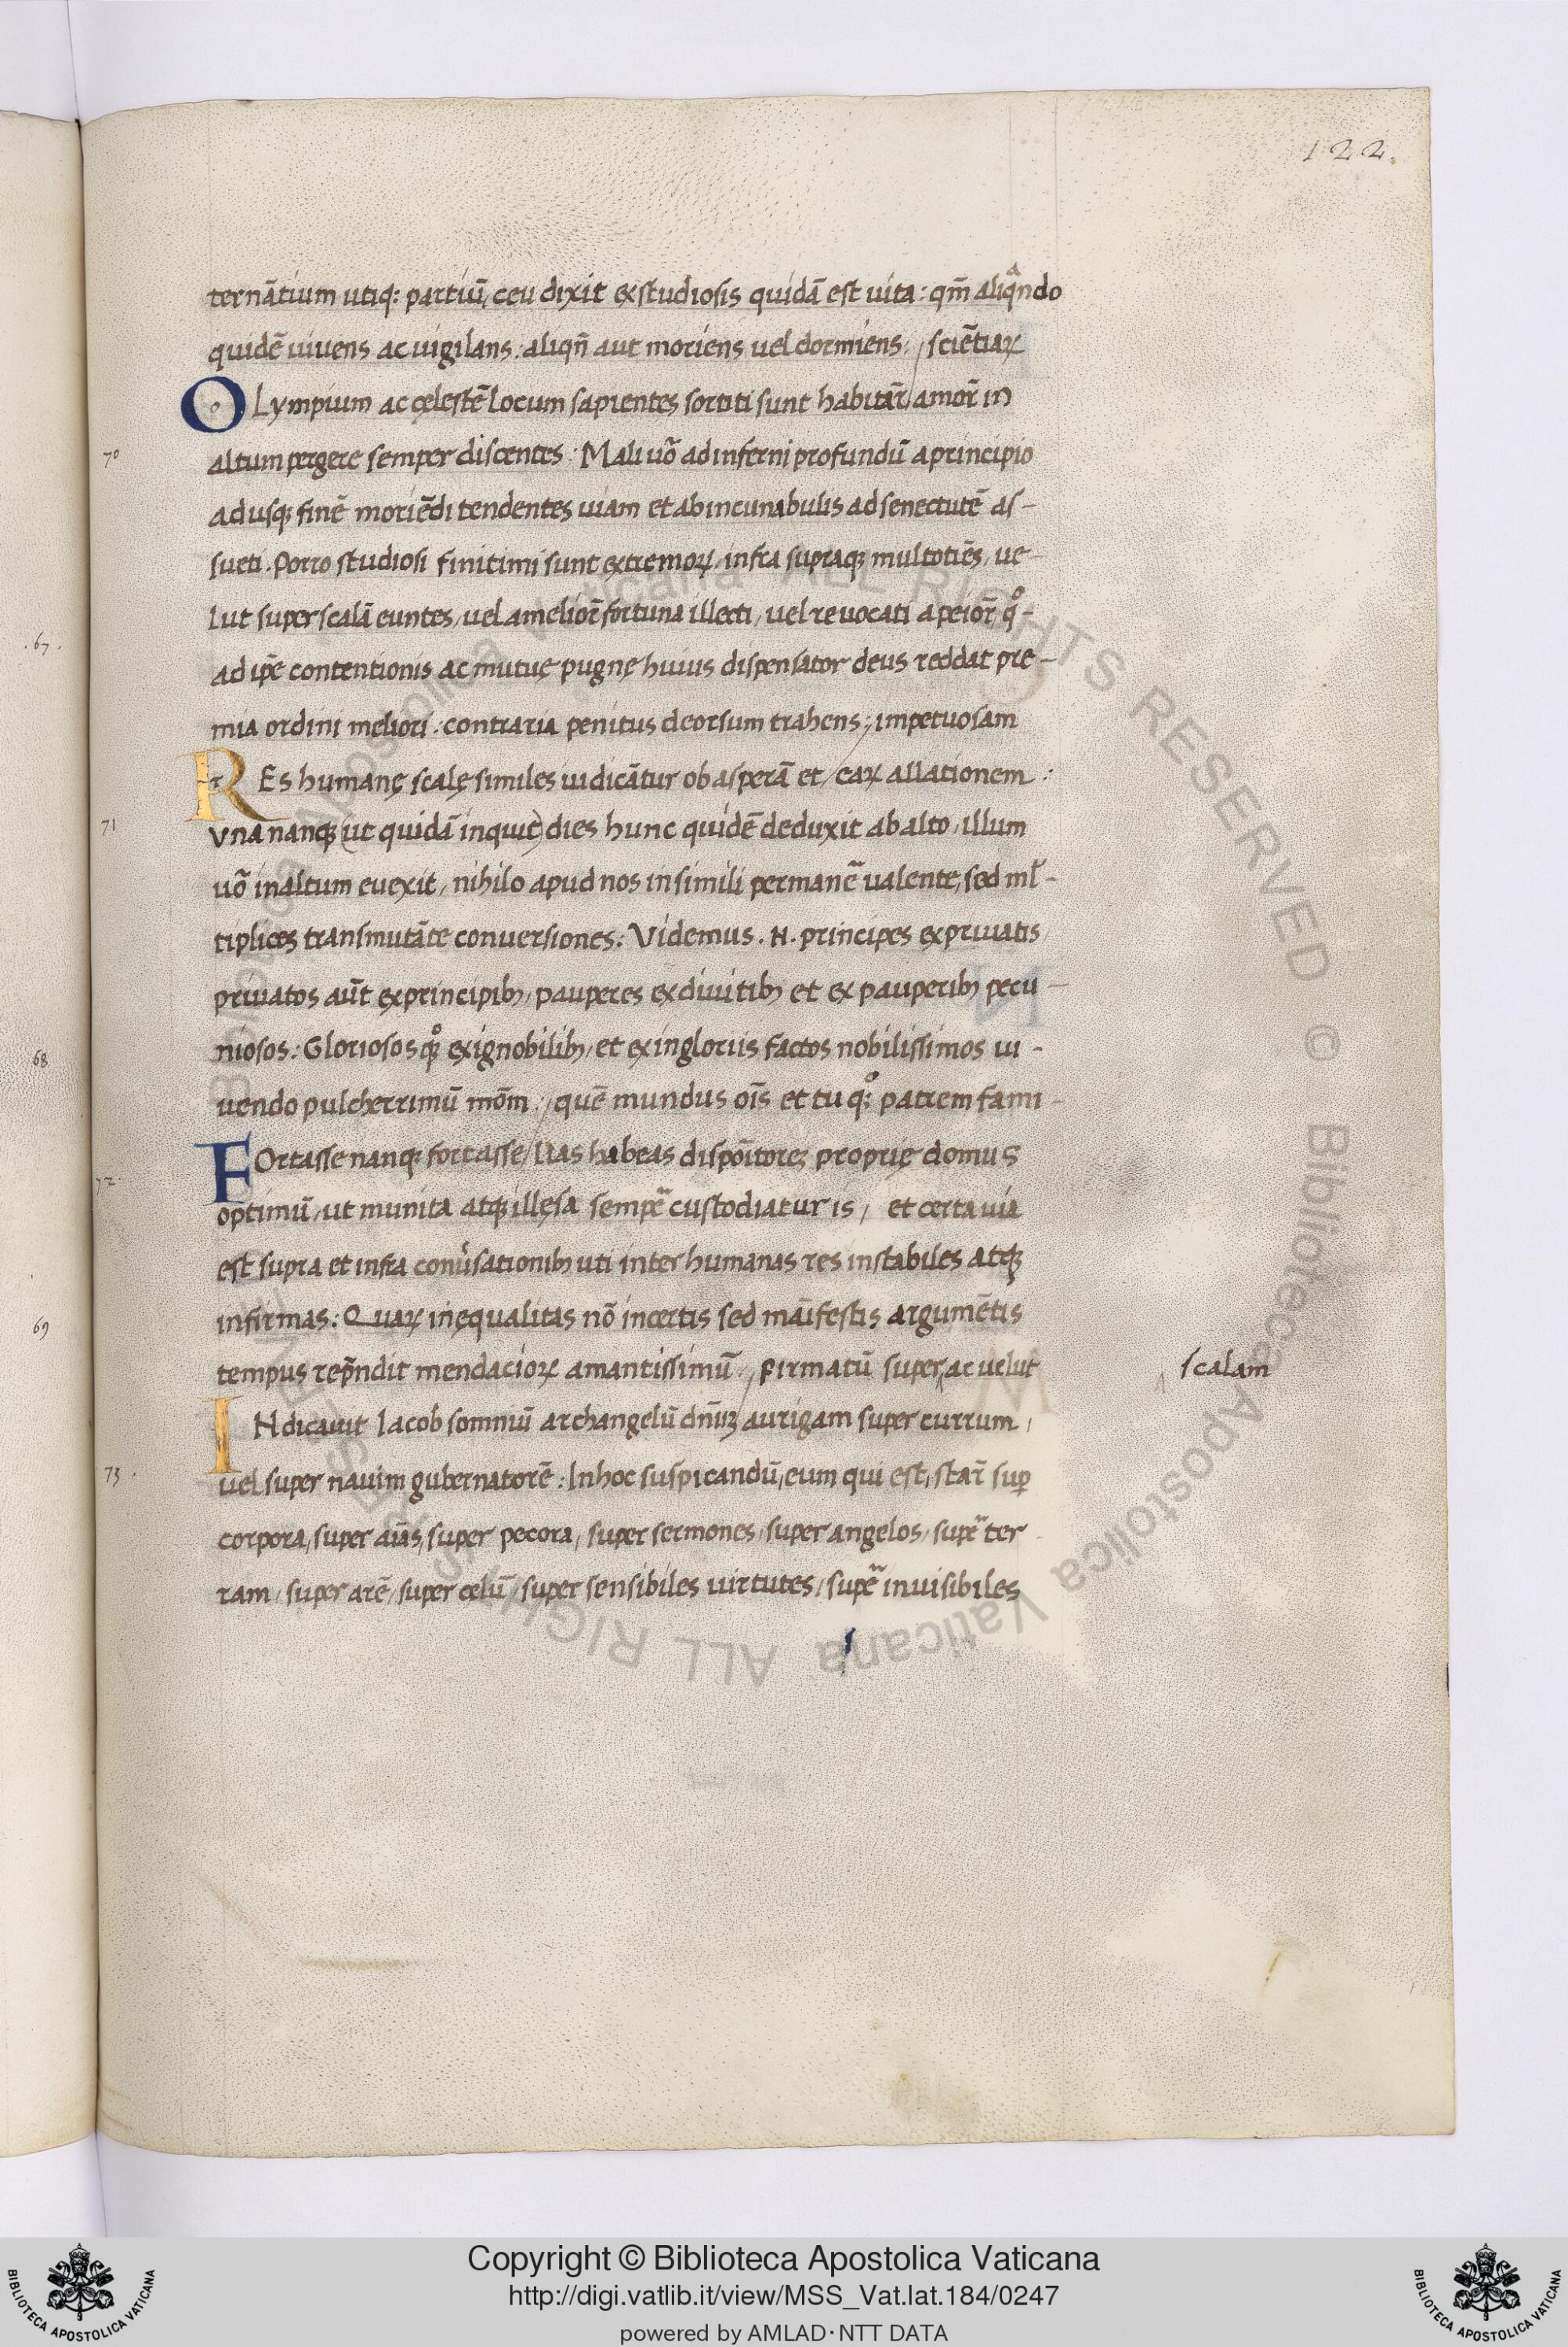 122.
ternãtium utiq: partiũ, ceu dixit ex studiosis quidã est uita: qm̃ aliqᵃndo
quidẽ uiuens ac uigilans: aliqñ aut moriens uel dormiens. / sciẽtiaꝝ
OLympium ac cęlestẽ locum sapientes sortiti sunt habitar̃ / amor̃ in
70 altum pergere semper discentes: Mali uõ ad inferni profundũ a principio
ad usqꝫ finẽ moriẽdi tendentes uiam et ab incunabulis ad senectutẽ as-
sueti. Porro studiosi finitimi sunt extremoꝝ, infra supraqꝫ multotiẽs, ue-
lut super scalã euntes, uel a melior̃ fortuna illecti, uel reuocati a peior̃ q°-
.67. ad ip̃e contentionis ac mutuę pugnę huius dispensator deus reddat pre-
mia ordini meliori: contraria penitus deorsum trahens; / impetuosam
REs humanę scalę similes iudicãtur ob asperã et / eaꝝ allationem:
71 Vna nanqꝫ (ut quidã inquit) dies hunc quidẽ deduxit ab alto, illum
uõ in altum euexit, nihilo apud nos in simili permanẽ ualente, sed ml̃-
tiplices transmutãte conuersiones: Videmus .N. principes ex priuatis
priuatos aũt ex principibꝫ, pauperes ex diuitibꝫ et ex pauperibꝫ pecu-
niosos: Gloriosos q°ꝫ ex ignobilibꝫ, et ex ingloriis factos nobilissimos ui-
68
uendo pulcherrimũ mõm: / quẽ mundus oĩs et tu q°: patrem fami-
FOrtasse nanqꝫ fortasse / lias habeas dispõitoreꝫ proprię domus
72. optimũ, ut munita atqꝫ illęsa semp̃e custodiatur is, et certa uia
est supra et infra conũsationibꝫ uti inter humanas res instabiles atqꝫ
infirmas: Quaꝝ inęqualitas nõ incertis sed mãifestis argumẽtis
69
tempus rep̃ndit mendacioꝝ amantissimũ. / Firmatũ super ‸ ac uelut scalam
INdicauit Iacob somniũ archangelũ dñuꝫ / aurigam super currum,
73. uel super nauim gubernatorẽ: In hoc suspicandũ, eum qui est, star̃ sup̃
corpora, super aĩas, super pecora, super sermones, super angelos, sup̃e ter
ram, super arẽ, super celũ, super sensibiles uirtutes, sup̃e inuisibiles
Copyright © Biblioteca Apostolica Vaticana
http://digi.vatlib.it/view/MSS_Vat.lat.184/0247
powered by AMLAD·NTT DATA
BIBLIOTECA APOSTOLICA VATICANA
BIBLIOTECA APOSTOLICA VATICANA